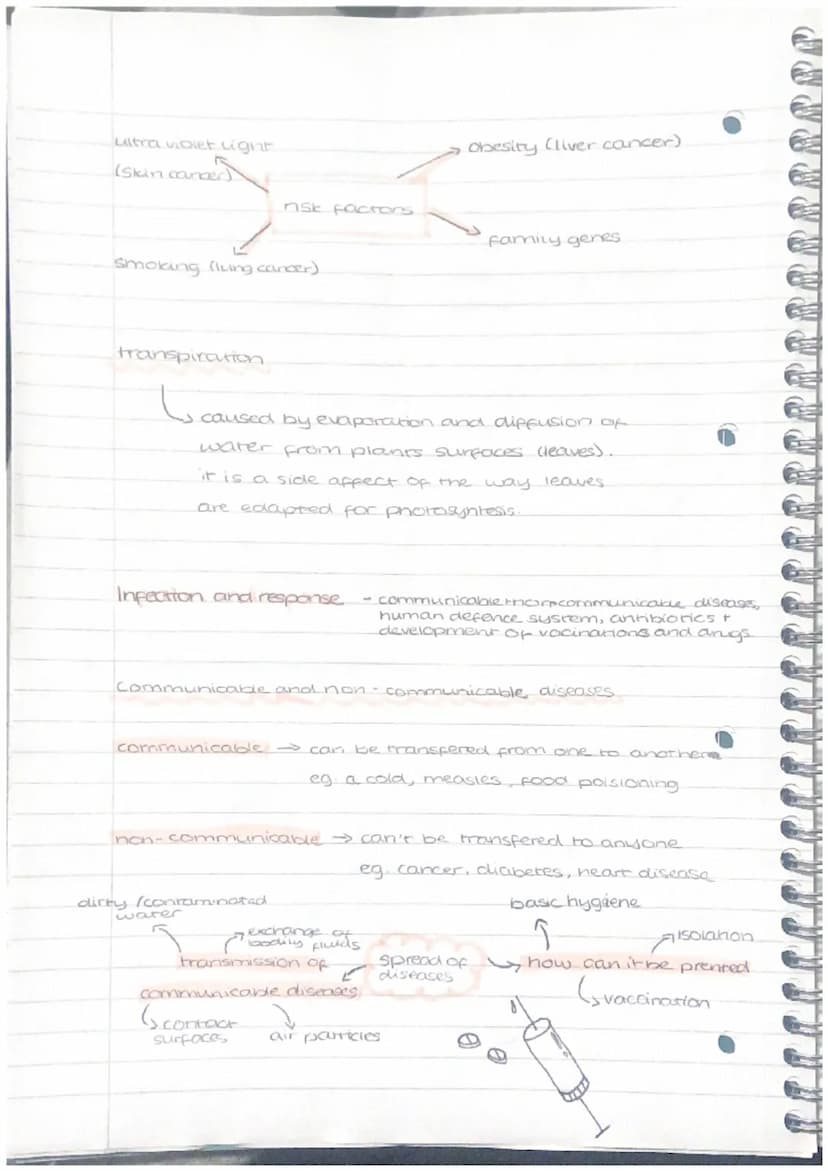 ultra violet light
(skin cancer)
obesity (liver cancer)
risk factors
family genes
smoking (lung cancer)
transpiration
caused by evaporation and diffusion of
water from plants surfaces (leaves).
it is a side affect of the way leaves
are adapted for photosyntesis.
Infection and response - communicable + non-communicable diseases,
human defence system, antibiotics +
development of vaccinations and drugs
communicable and non-communicable diseases
communicable → can be transfered from one to another
eg. a cold, measles, food poisioning
non-communicable → can't be transfered to anyone
eg. cancer, diabetes, heart disease
dirty/contaminated
water
basic hygiene
exchange of
bodily fluids
isolation
transmission of
communicable diseases
spread of
diseases
how can it be prented
vaccination
contact
surfaces
air particles